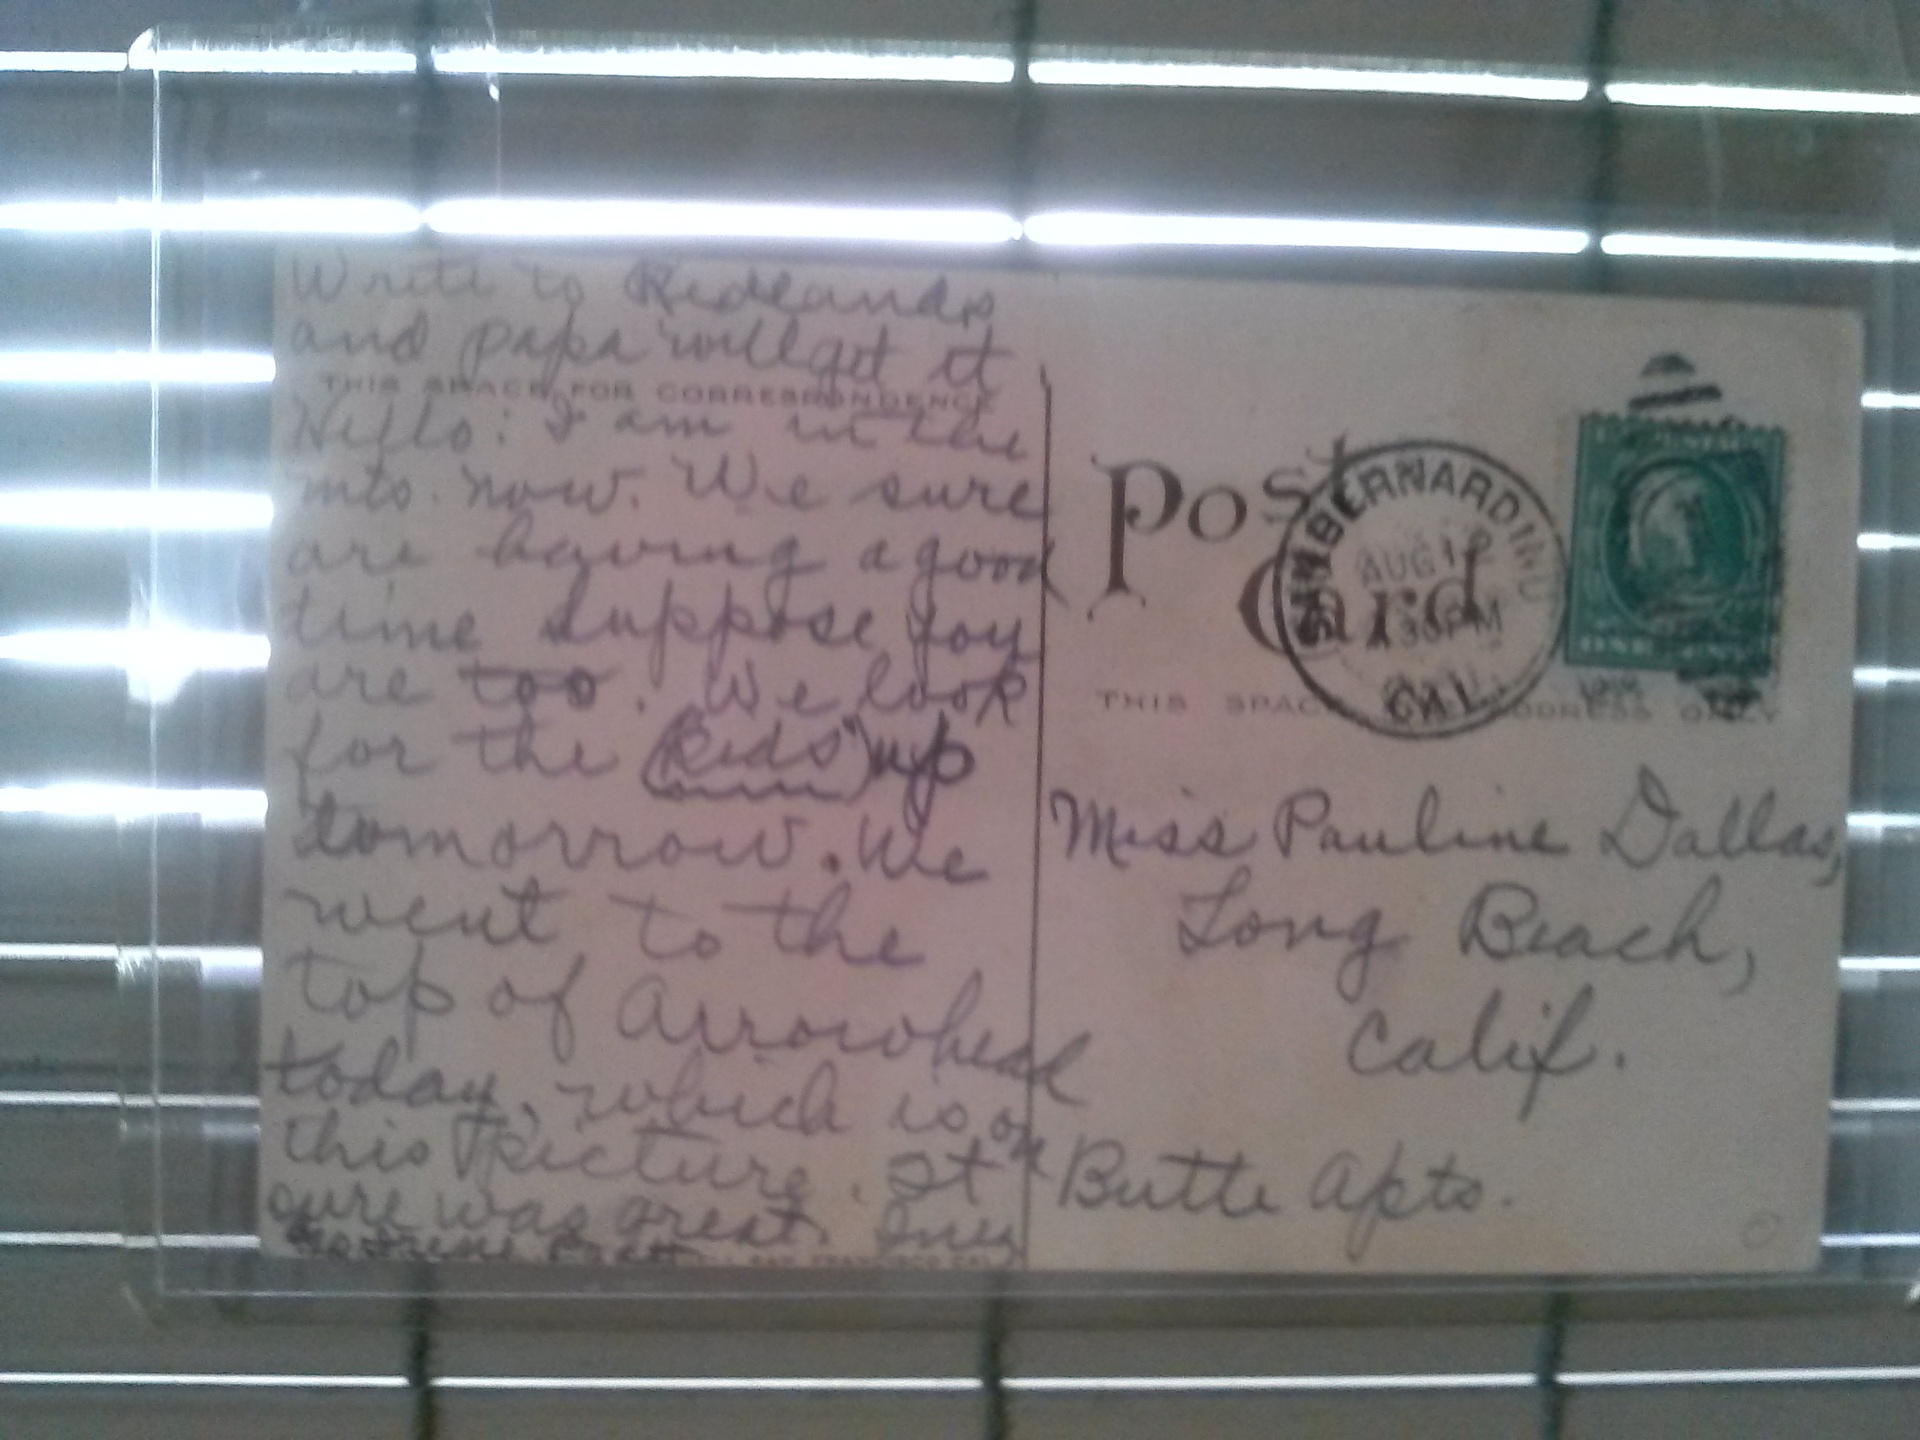 Write to Redlands
and papa will get it
THIS SPACE FOR CORRESPONDENCE
Hello: I am in the
mts. now. We sure
are having a good
time suppose you
are too. We look
for the (Kids") up
tomorrow. We
went to the
top of Arrowhead
today, which is on
this Picture. It
sure was great. Inez
Post
Card
SAN BERNARDINO
AUG 12
30 PM
CAL.
ONE CENT
THIS SPACE ADDRESS ONLY
Miss Pauline Dallas,
Long Beach,
Calif.
Butte Apts.